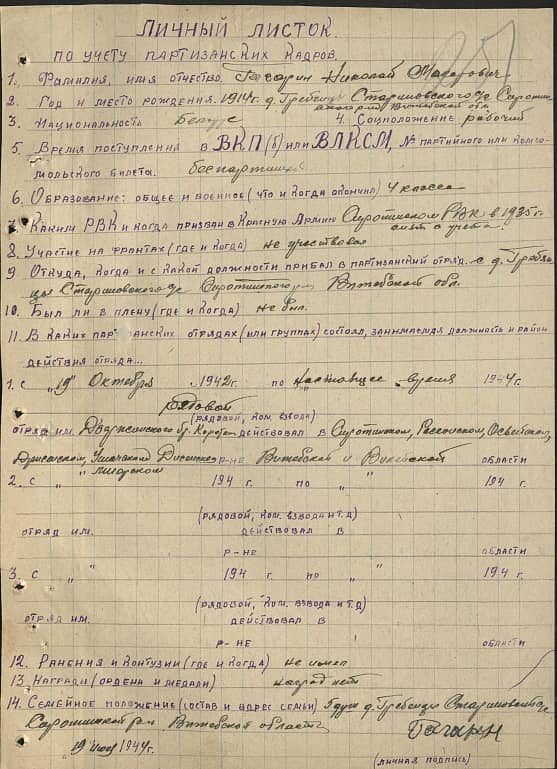 Личный листок
по учету партизанских кадров.
1. Фамилия, имя отчество. Гагарин Николай Макарович
2. Год и место рождения. 1914 г. д. Гребенцы Стариновского с/с Сиротин-
ского р-на Витебской обл
3. Национальность Белорус 4. Соцположение рабочий
5 Время поступления в ВКП(б) или ВЛКСМ, № партийного или комсо-
мольского билета. беспартийный
6. Образование: общее и военное (что и когда окончил) 4 класса
7. Каким РВК и когда призван в Красную Армию Сиротинском РВК в 1935 г.
снят с учета.
8. Участие на фронтах (где и когда) не участвовал
9 Откуда, когда и с какой должности прибал в партизанский отряд. с д. Гребен-
цы Стариновского с/с Сиротинского р-на Витебской обл.
10. Был ли в плену (где и когда) не был.
11. В каких партизанских отрядах (или группах) состоял, занимаемая должность и район
действия отряда...
1. с "19" Октября 1942 г. по настоящее время 1944 г.
рядовой
(рядовой, ком. взвода)
отряд им. Дзержинского бр. Короткина действовал в Сиротинском, Россонском, Освейском,
Дрисенском, Ушачском Дисненском р-не Витебской и Вилейской области
2. с " " 194 г. по " 194 г.
(рядовой, ком. взвода и т.д)
отряд им. действовал в
р-не области
3. с " " 194 г. по " 194 г.
(рядовой, ком. взвода и т.д)
отряд им. действовал в
р-не области
12. Ранения и контузии (где и когда) не имел
13. Награды (ордена и медали) наград нет
14. Семейное положение (состав и адрес семьи) д. Гребенцы Стариновского с/с
Сиротинский р-н Витебская область
"19" 1944 г. Гагарин
(личная подпись)